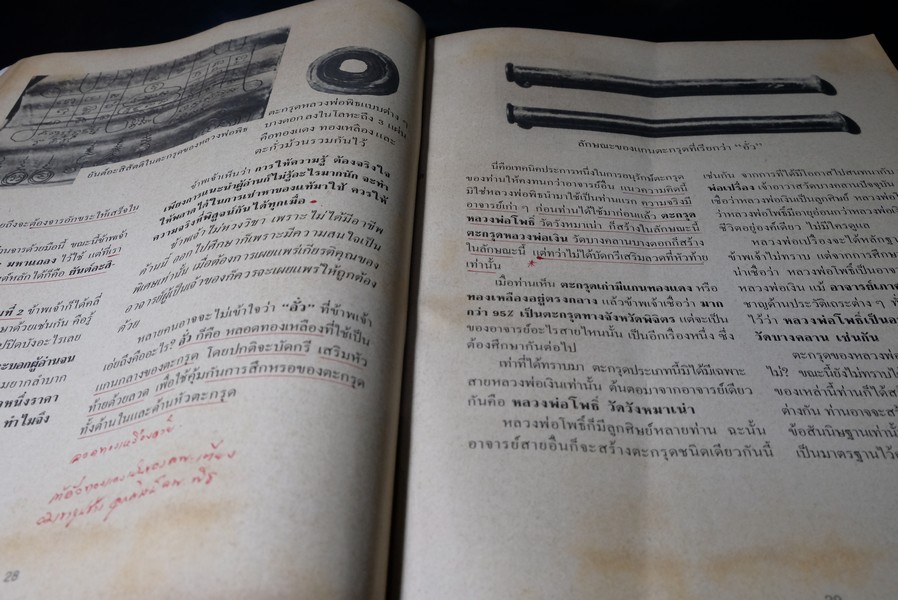 ตะกรุดหลวงพ่อพิธแบบต่าง ๆ
บางดอกลงในโลหะถึง 3 แผ่น
คือทองแดง ทองเหลืองและ
ตะกั่วม้วนรวมกันไว้
อันคือตะกรุดของหลวงพ่อพิธ
ต้องจารอักขระให้เสร็จใน
จารด้วยมือนี้ ขณะนี้ข้าพเจ้า
มหานแถลง ไว้ใช้ แต่ที่เรา
ที่ 2 ข้าพเจ้าก็ได้คลี่
มาด้วยเช่นกัน คือรู้
ปปิดบังอะไรเลย
ะบอกผู้อ่านจน
มยากลำบาก
ดหนึ่งราคา
ทำไมจึง
ข้าพเจ้าเห็นว่า การให้ความรู้ ต้องจริงใจ
เพียงการแนะนำผู้อ่านก็ไม่รู้อะไรมากนัก จะทำ
ให้พลาดได้ในการเช่าหาของแท้มาใช้ ควรให้
ความจริงที่พิสูจน์กันได้ทุกเมื่อ
ข้าพเจ้าไม่หวงวิชา เพราะไม่ได้มีอาชีพ
ด้านนี้ ออกไปศึกษาก็เพราะมีความสนใจเป็น
พิเศษเท่านั้น เมื่อต้องการเผยแพร่เกียรติคุณของ
อาจารย์ผู้เป็นเจ้าของก็ควรจะเผยแพร่ให้ถูกต้อง
ด้วย
หลายคนอาจจะไม่เข้าใจว่า “ลั่ว” ที่ข้าพเจ้า
เอ่ยถึงคืออะไร? ลั่ว ก็คือ หลอดทองเหลืองที่ใช้เป็น
แกนกลางของตะกรุด โดยปกติจะบัดกรี เสริมหัว
ท้ายด้วยลวด เพื่อใช้คุ้มกันการสึกหรอของตะกรุด
ทั้งด้านในและด้านหัวตะกรุด
28
ลักษณะของแกนตะกรุดที่เรียกว่า “ลั่ว”
นี่คือเทคนิคประการหนึ่งในการอนุรักษ์ตะกรุด
ของท่านให้คงทนกว่าอาจารย์อื่น แนวความคิดนี้
มิใช่หลวงพ่อพิธนำมาใช้เป็นท่านแรก ความจริงมี
อาจารย์เก่า ๆ ก่อนท่านได้ใช้มาก่อนแล้ว ตะกรุด
หลวงพ่อโพธิ์ วัดวังหมาเน่า ก็สร้างในลักษณะนี้
ตะกรุดหลวงพ่อเงิน วัดบางคลานบางดอกก็สร้าง
ในลักษณะนี้ แต่ทว่าไม่ได้บัดกรีเสริมลวดที่หัวท้าย
เท่านั้น
เมื่อท่านเห็น ตะกรุดเก่ามีแกนทองแดง หรือ
ทองเหลืองอยู่ตรงกลาง แล้วข้าพเจ้าเชื่อว่า มาก
กว่า 95% เป็นตะกรุดทางจังหวัดพิจิตร แต่จะเป็น
ของอาจารย์อะไรสายไหนนั้น เป็นอีกเรื่องหนึ่ง ซึ่ง
ต้องศึกษากันต่อไป
เท่าที่ได้ทราบมา ตะกรุดประเภทนี้มีได้เฉพาะ
สายหลวงพ่อเงินเท่านั้น ต้นตอมาจากอาจารย์เดียว
กันคือ หลวงพ่อโพธิ์ วัดวังหมาเน่า
หลวงพ่อโพธิ์ก็มีลูกศิษย์หลายท่าน ฉะนั้น
อาจารย์สายอื่นก็จะสร้างตะกรุดชนิดเดียวกันนี้
เช่นกัน จากการที่ได้มีโอกาสไปสนทนากับ
พ่อเปรื่อง เจ้าอาวาสวัดบางคลานปัจจุบัน
เชื่อว่าหลวงพ่อเงินเป็นลูกศิษย์ หลวงพ่อ
ว่าหลวงพ่อโพธิ์มีอายุอ่อนกว่าหลวงพ่อเ
ชีวิตอยู่องค์เดียว ไม่มีใครดูแล
หลวงพ่อเปรื่องจะได้หลักฐาน
ข้าพเจ้าไม่ทราบ แต่จากการศึกษา
น่าเชื่อว่า หลวงพ่อโพธิ์เป็นอาจ
หลวงพ่อเงิน แม้ อาจารย์เภา
ชาญด้านประวัติเถระต่าง ๆ ท
ไว้ว่า หลวงพ่อโพธิ์เป็นอา
วัดบางคลาน เช่นกัน
ตะกรุดของหลวงพ่อ
ไม่? ขณะนี้ยังไม่ทราบไ
ของเหล่านี้ท่านก็ได้สร้
ต่างกัน ท่านอาจจะสร้
ข้อสันนิษฐานเท่านั้
เป็นมาตรฐานไว้เ